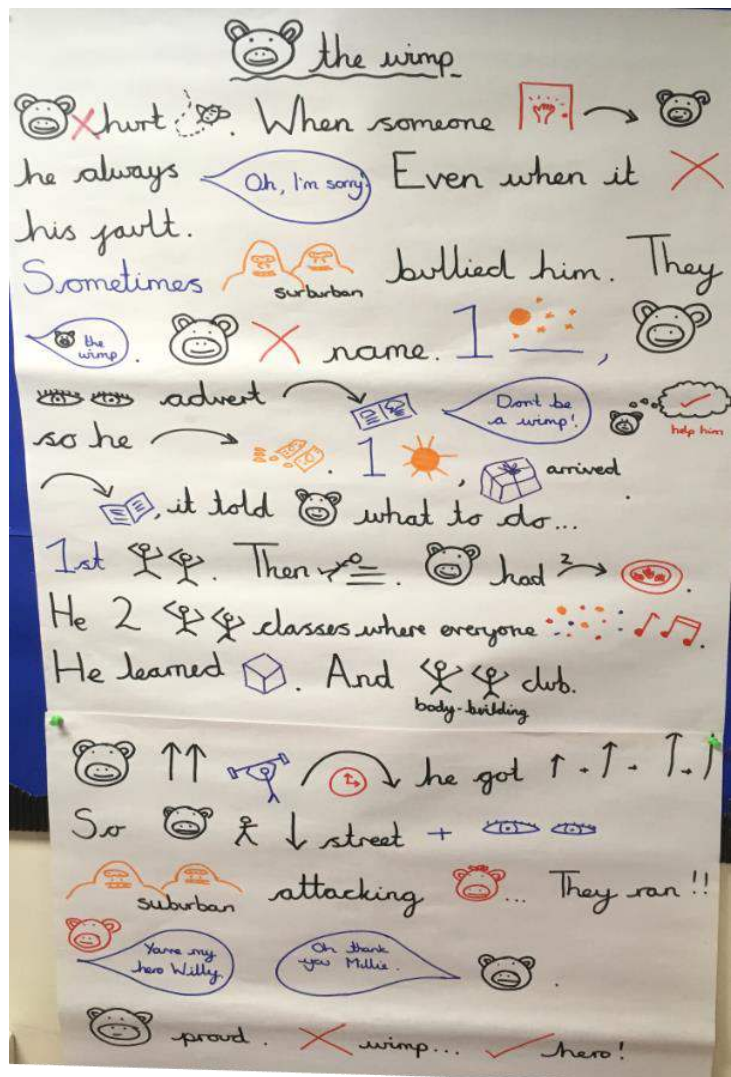 the wimp
hurt . When someone
he always Oh, I'm sorry! Even when it
his fault.
Sometimes surburban bullied him. They
the wimp . name. 1 ,
advert Don't be a wimp! help him
so he . 1 , arrived .
, it told what to do...
1st . Then . had 2 .
He 2 classes where everyone .
He learned . And body-building club.
he got
So street +
suburban attacking ... They ran !!
You're my hero Willy. Oh thank you Millie. .
proud. wimp... hero!